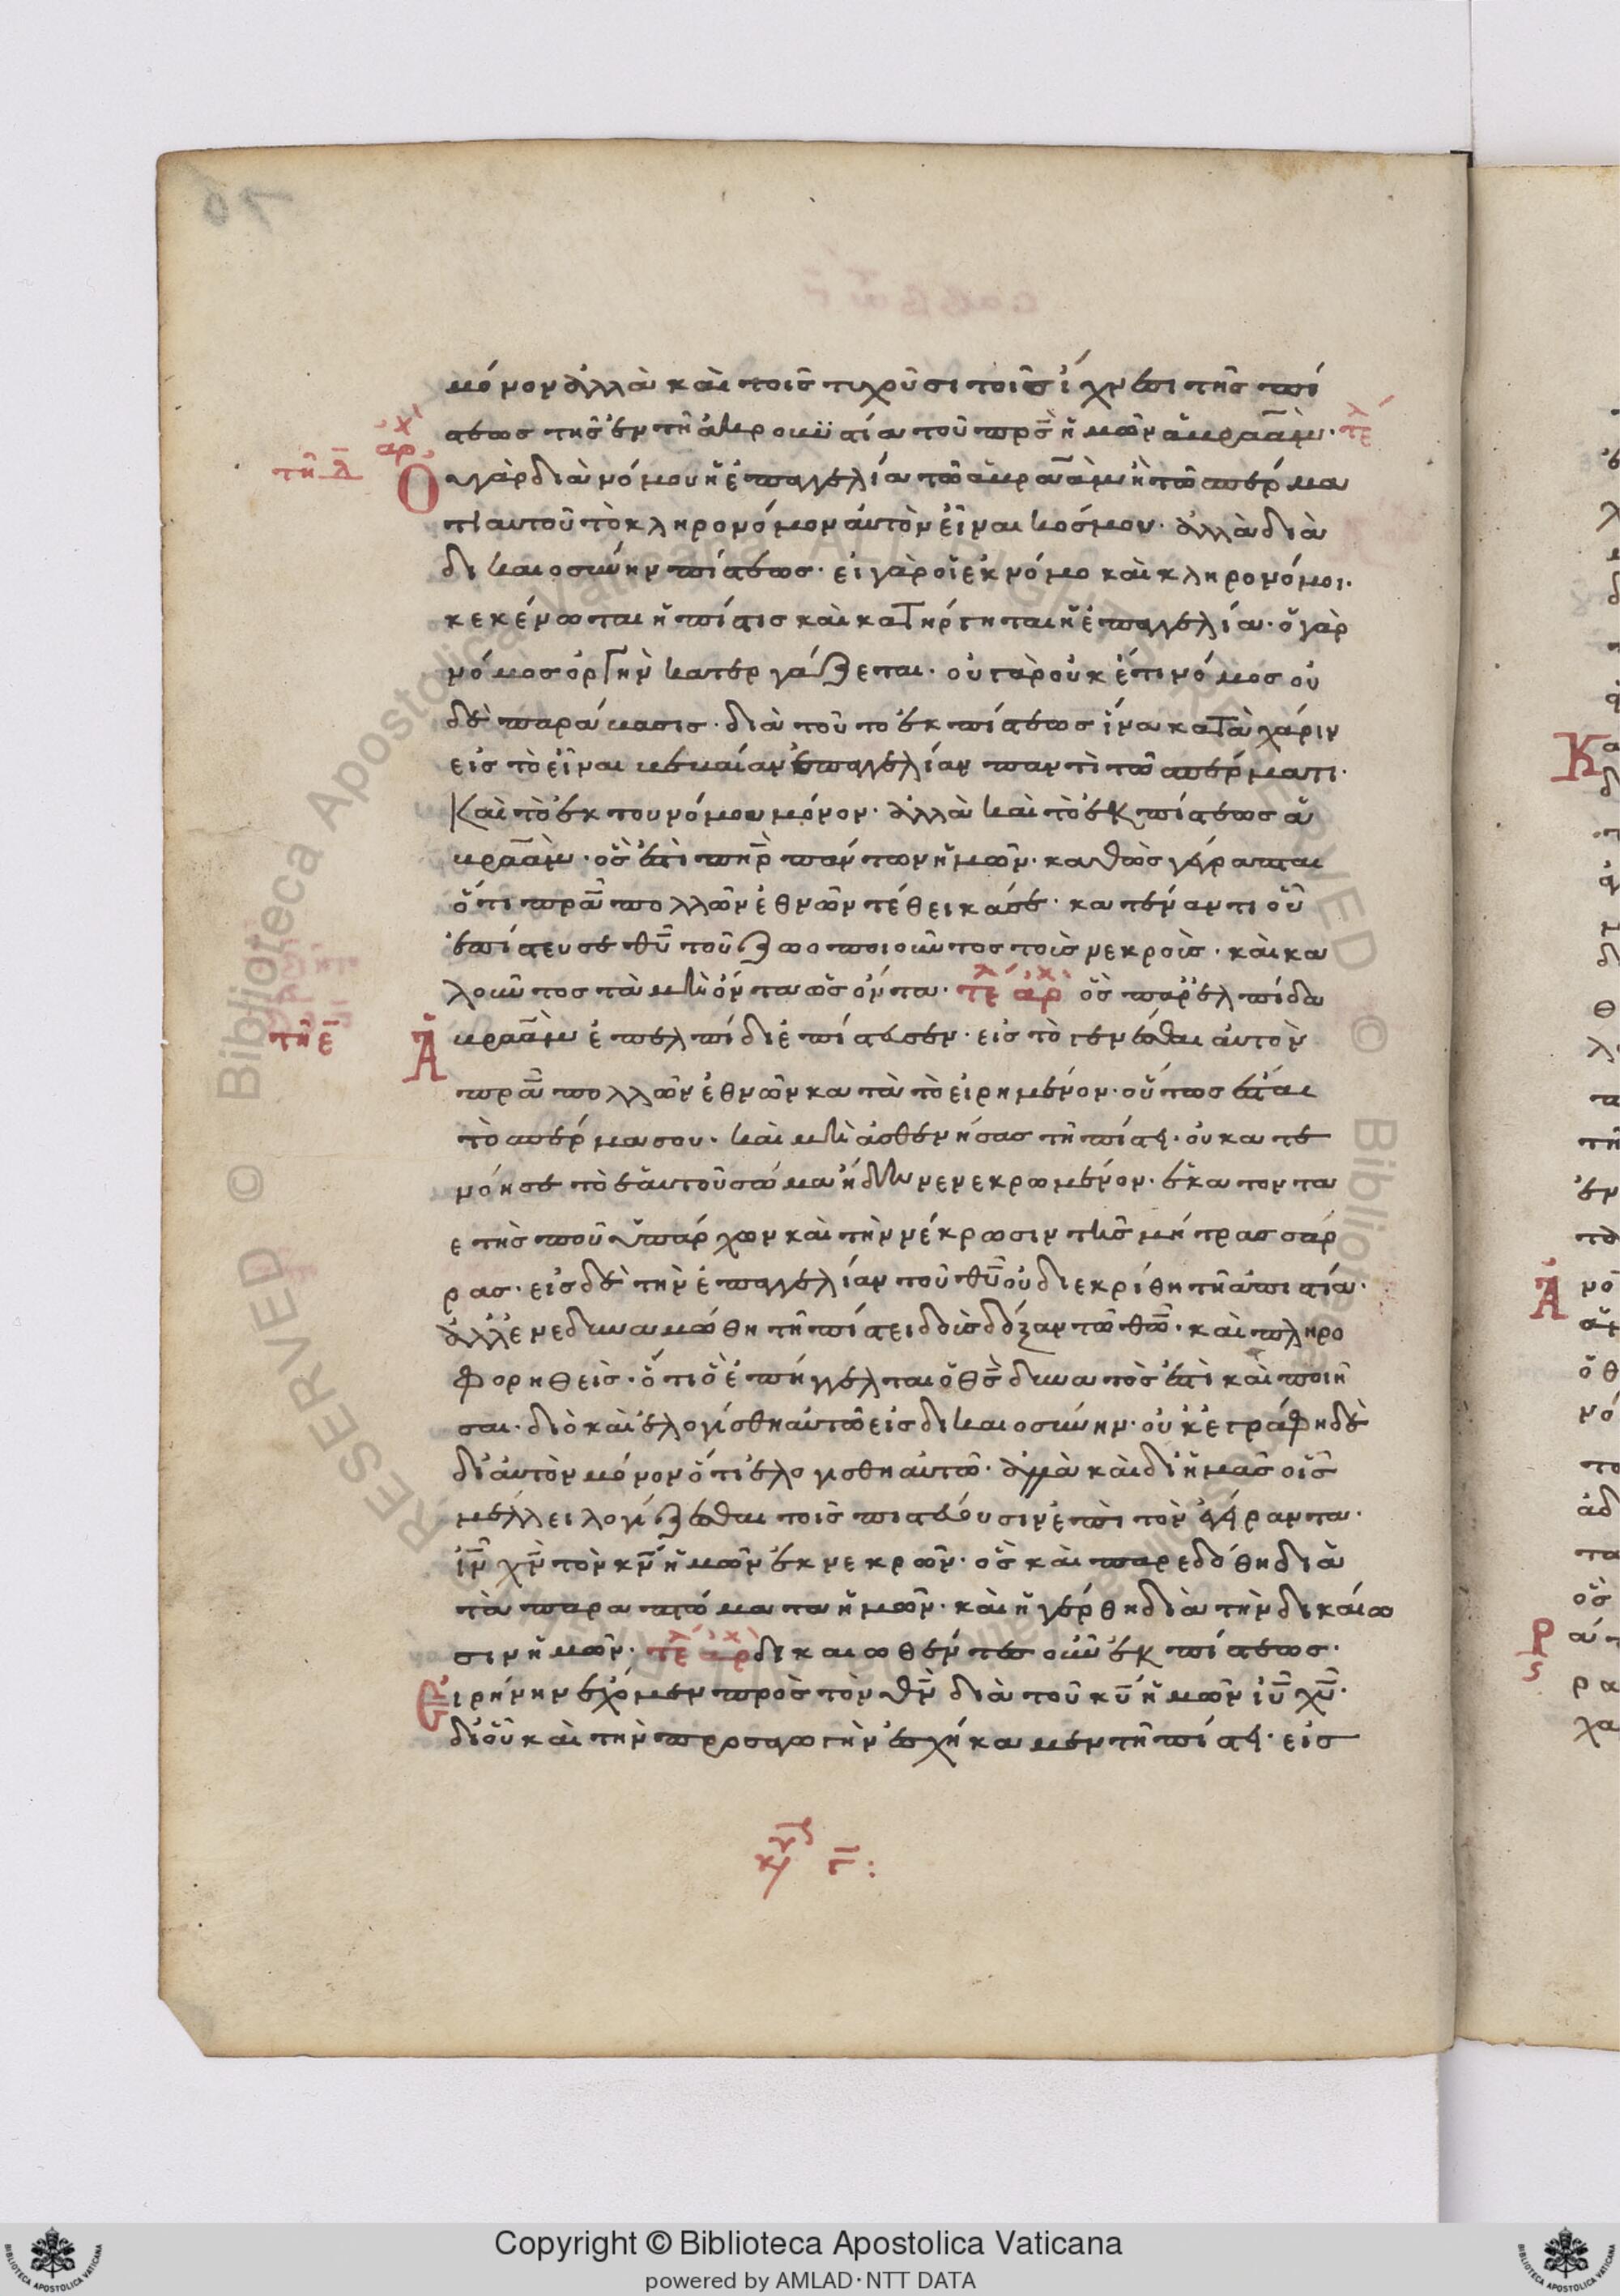 μόνον ἀλλὰ καὶ τοῖς τυχοῦσι τοῖς ἴχνεσι τῆς πί
στεως τῆς ἐν τῆ ἀκροβυστία τοῦ πρ̅ς ἡμῶν ἀβραάμ· τε
τῆ δ̅
αρχ
Ὀυ γὰρ διὰ νόμου ἡ ἐπαγγελία τῶ ἀβραὰμ ἢ τῶ σπέρμα
τι αυτοῦ τὸ κληρονόμον ἀυτὸν εἶναι κοσμου· ἀλλὰ διὰ
δικαιοσύνην πίστεως· εἰ γὰρ οἱ ἐκ νόμο καὶ κληρονόμοι·
κεκένωται ἡ πίστις καὶ κατήργηται ἡ ἐπαγγελία· ὁ γὰρ
νόμος ὀργὴν κατεργάζεται· οὐ γὰρ οὐκ ἔτι νόμος οὐ
δὲ παράβασις· διὰ τοῦτο ἐκ πίστεως ἵνα κατὰ χάριν
εἰς τὸ εἶναι βεβαίαν ἐπαγγελίαν παντὶ τῶ σπέρματι·
Καὶ τὸ ἐκ του νόμου μόνον· ἀλλὰ καὶ τὸ ἐκ πίστεως ἀ
βραάμ· ὅς ἐστὶ πη̅ρ πάντων ἡμῶν· καθὼς γέγραπται
ὅτι πρ̅α πολλῶν ἐθνῶν τέθεικά σε· κατέναντι οὗ
ἐπίστευσε θ̅υ τοῦ ζωοποιοῦντος τοὶς νεκροὶς· καὶ κα
λοῦντος τὰ μὴ ὄντα ὡς ὄντα· τε αρχ ὃς παρ' ἐλπίδα
τῆ ε̅
Ἀβραὰμ ἐπ' ἐλπίδι ἐπίστευσεν· εἰς τὸ γενέσθαι ἀυτὸν
πρ̅α πολλῶν ἐθνῶν κατὰ τὸ εἰρημένον· οὕτως ἔσται
τὸ σπέρμα σου· καὶ μὴ ἀσθενήσας τῆ πίστει· οὐ κατε
νόησε τὸ ἑαυτοῦ σῶμα ἤδη νενεκρωμένον· ἑκατοντα
ετής που ὑπάρχων καὶ τὴν νέκρωσιν τῆς μήτρας σάρ
ρας· εἰς δὲ τὴν ἐπαγγελίαν τοῦ θ̅υ οὐ διεκρίθη τῆ ἀπιστία·
ἀλλ' ἐνεδυναμώθη τῆ πίστει δοὺς δόξαν τῶ θ̅ω· καὶ πληρο
φορηθεὶς· ὅτι ὃ ἐπήγγελται ὁ θ̅ς δυνατὸς ἐστὶ καὶ ποιῆ
σαι· διὸ καὶ ἐλογίσθη ἀυτῶ εἰς δικαιοσύνην· οὐκ ἐγράφη δὲ
δι' ἀυτὸν μόνον ὅτι ἐλογισθη ἀυτῶ· ἀλλὰ καὶ δι' ἡμᾶς οἷς
μέλλει λογίζεσθαι τοῖς πιστεύουσιν ἐπὶ τὸν ἐγείραντα·
ι̅ν χ̅ν τὸν κ̅ν ἡμῶν ἐκ νεκρῶν· ὃς καὶ παρεδόθη διὰ
τὰ παραπτώματα ἡμῶν· καὶ ἠγέρθη διὰ τὴν δικαίω
σιν ἡμῶν· τε αρχ δικαιωθέντες οὖν ἐκ πίστεως·
Ειρήνην ἔχομεν πρὸς τὸν θ̅ν διὰ τοῦ κ̅υ ἡμῶν ι̅υ χ̅υ·
δι' οὗ καὶ τὴν προσαγωγὴν ἐσχήκαμεν τῆ πίστει· εἰς